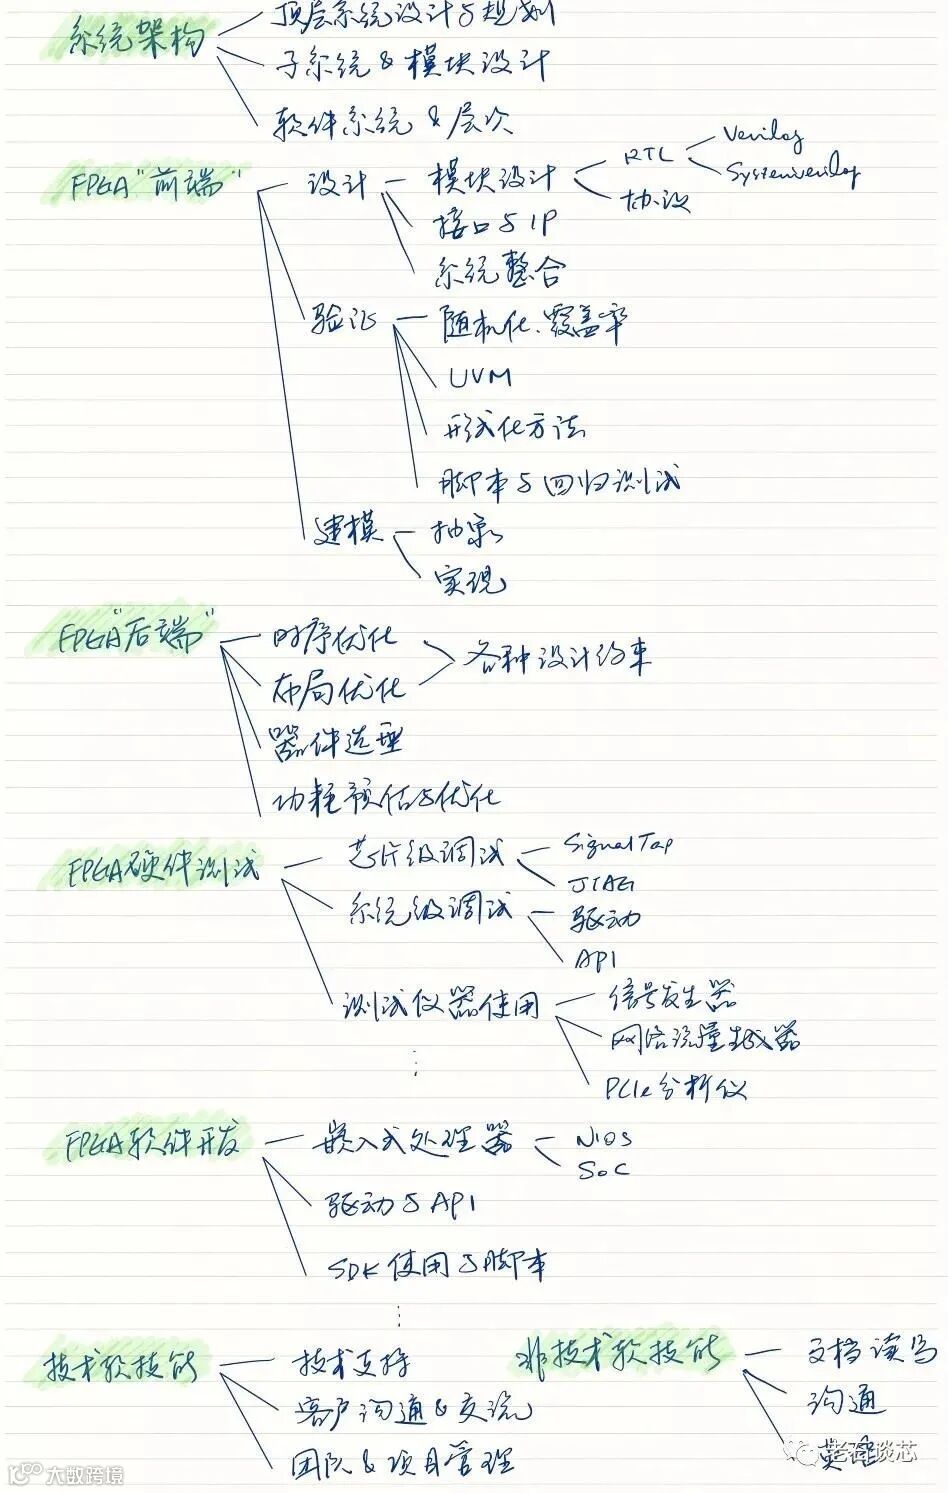 顶层系统设计与规划
系统架构
子系统 & 模块设计
软件系统 & 层次
FPGA"前端"
设计
模块设计
RTL
Verilog
Systemverilog
协议
接口与IP
系统整合
验证
随机化、覆盖率
UVM
形式化方法
脚本与回归测试
建模
抽象
实现
FPGA"后端"
时序优化
布局优化
各种设计约束
器件选型
功耗预估与优化
FPGA硬件测试
芯片级调试
SignalTap
JTAG
系统级调试
驱动
API
测试仪器使用
信号发生器
网络流量生成器
PCIe分析仪
FPGA软件开发
嵌入式处理器
NIOS
SoC
驱动与API
SDK使用与脚本
技术软技能
技术支持
客户沟通 & 交流
团队 & 项目管理
非技术软技能
文档读写
沟通
英语
老石谈芯
大数跨境